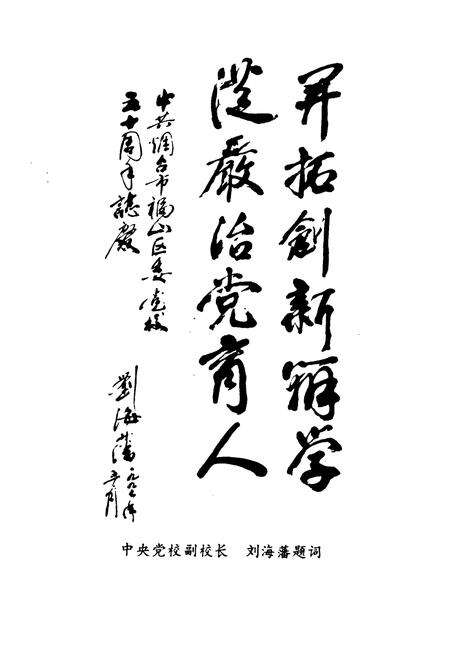 开拓创新办学
从嚴治党育人
中共烟台市福山区委党校
五十周年誌慶
劉海藩
一九九八年
五月
中央党校副校长 刘海藩题词